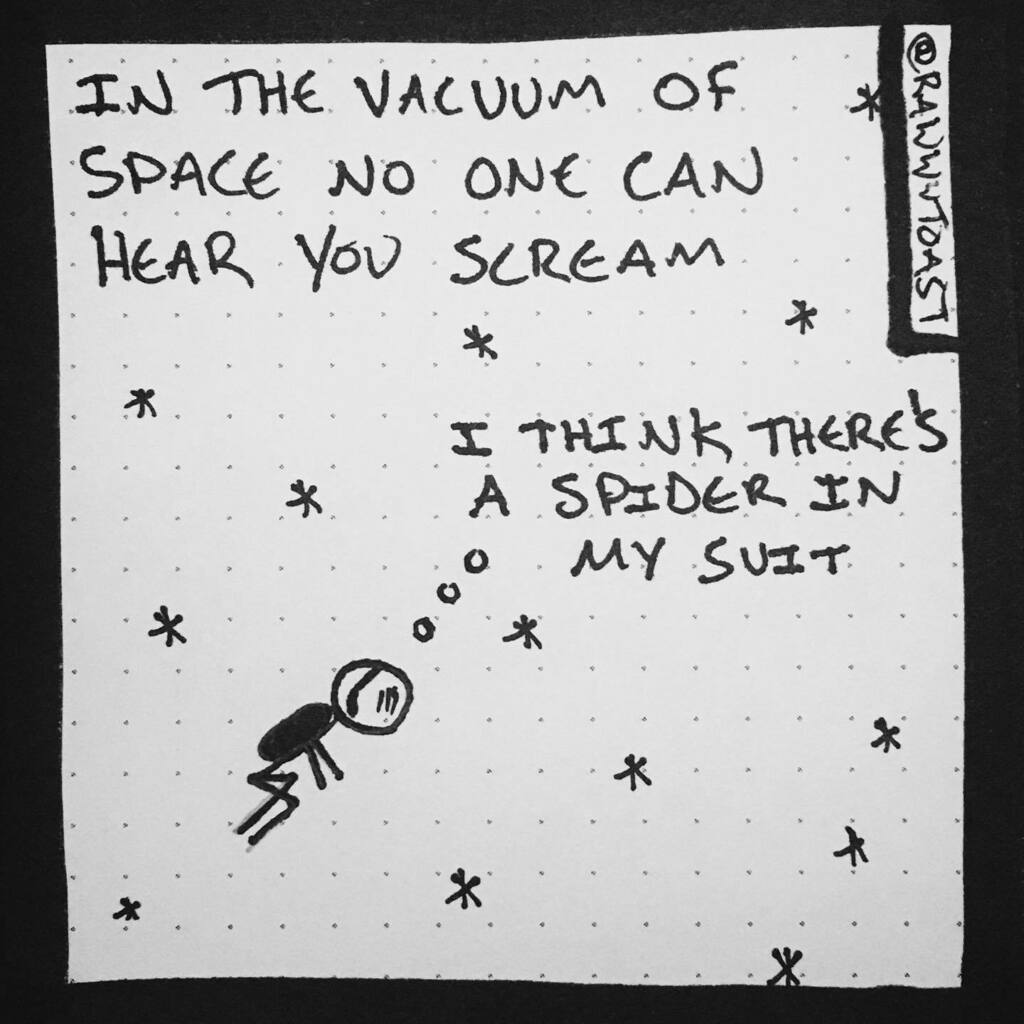 IN THE VACUUM OF
SPACE NO ONE CAN
HEAR YOU SCREAM
@RAWWWTOAST
I THINK THERE'S
A SPIDER IN
MY SUIT